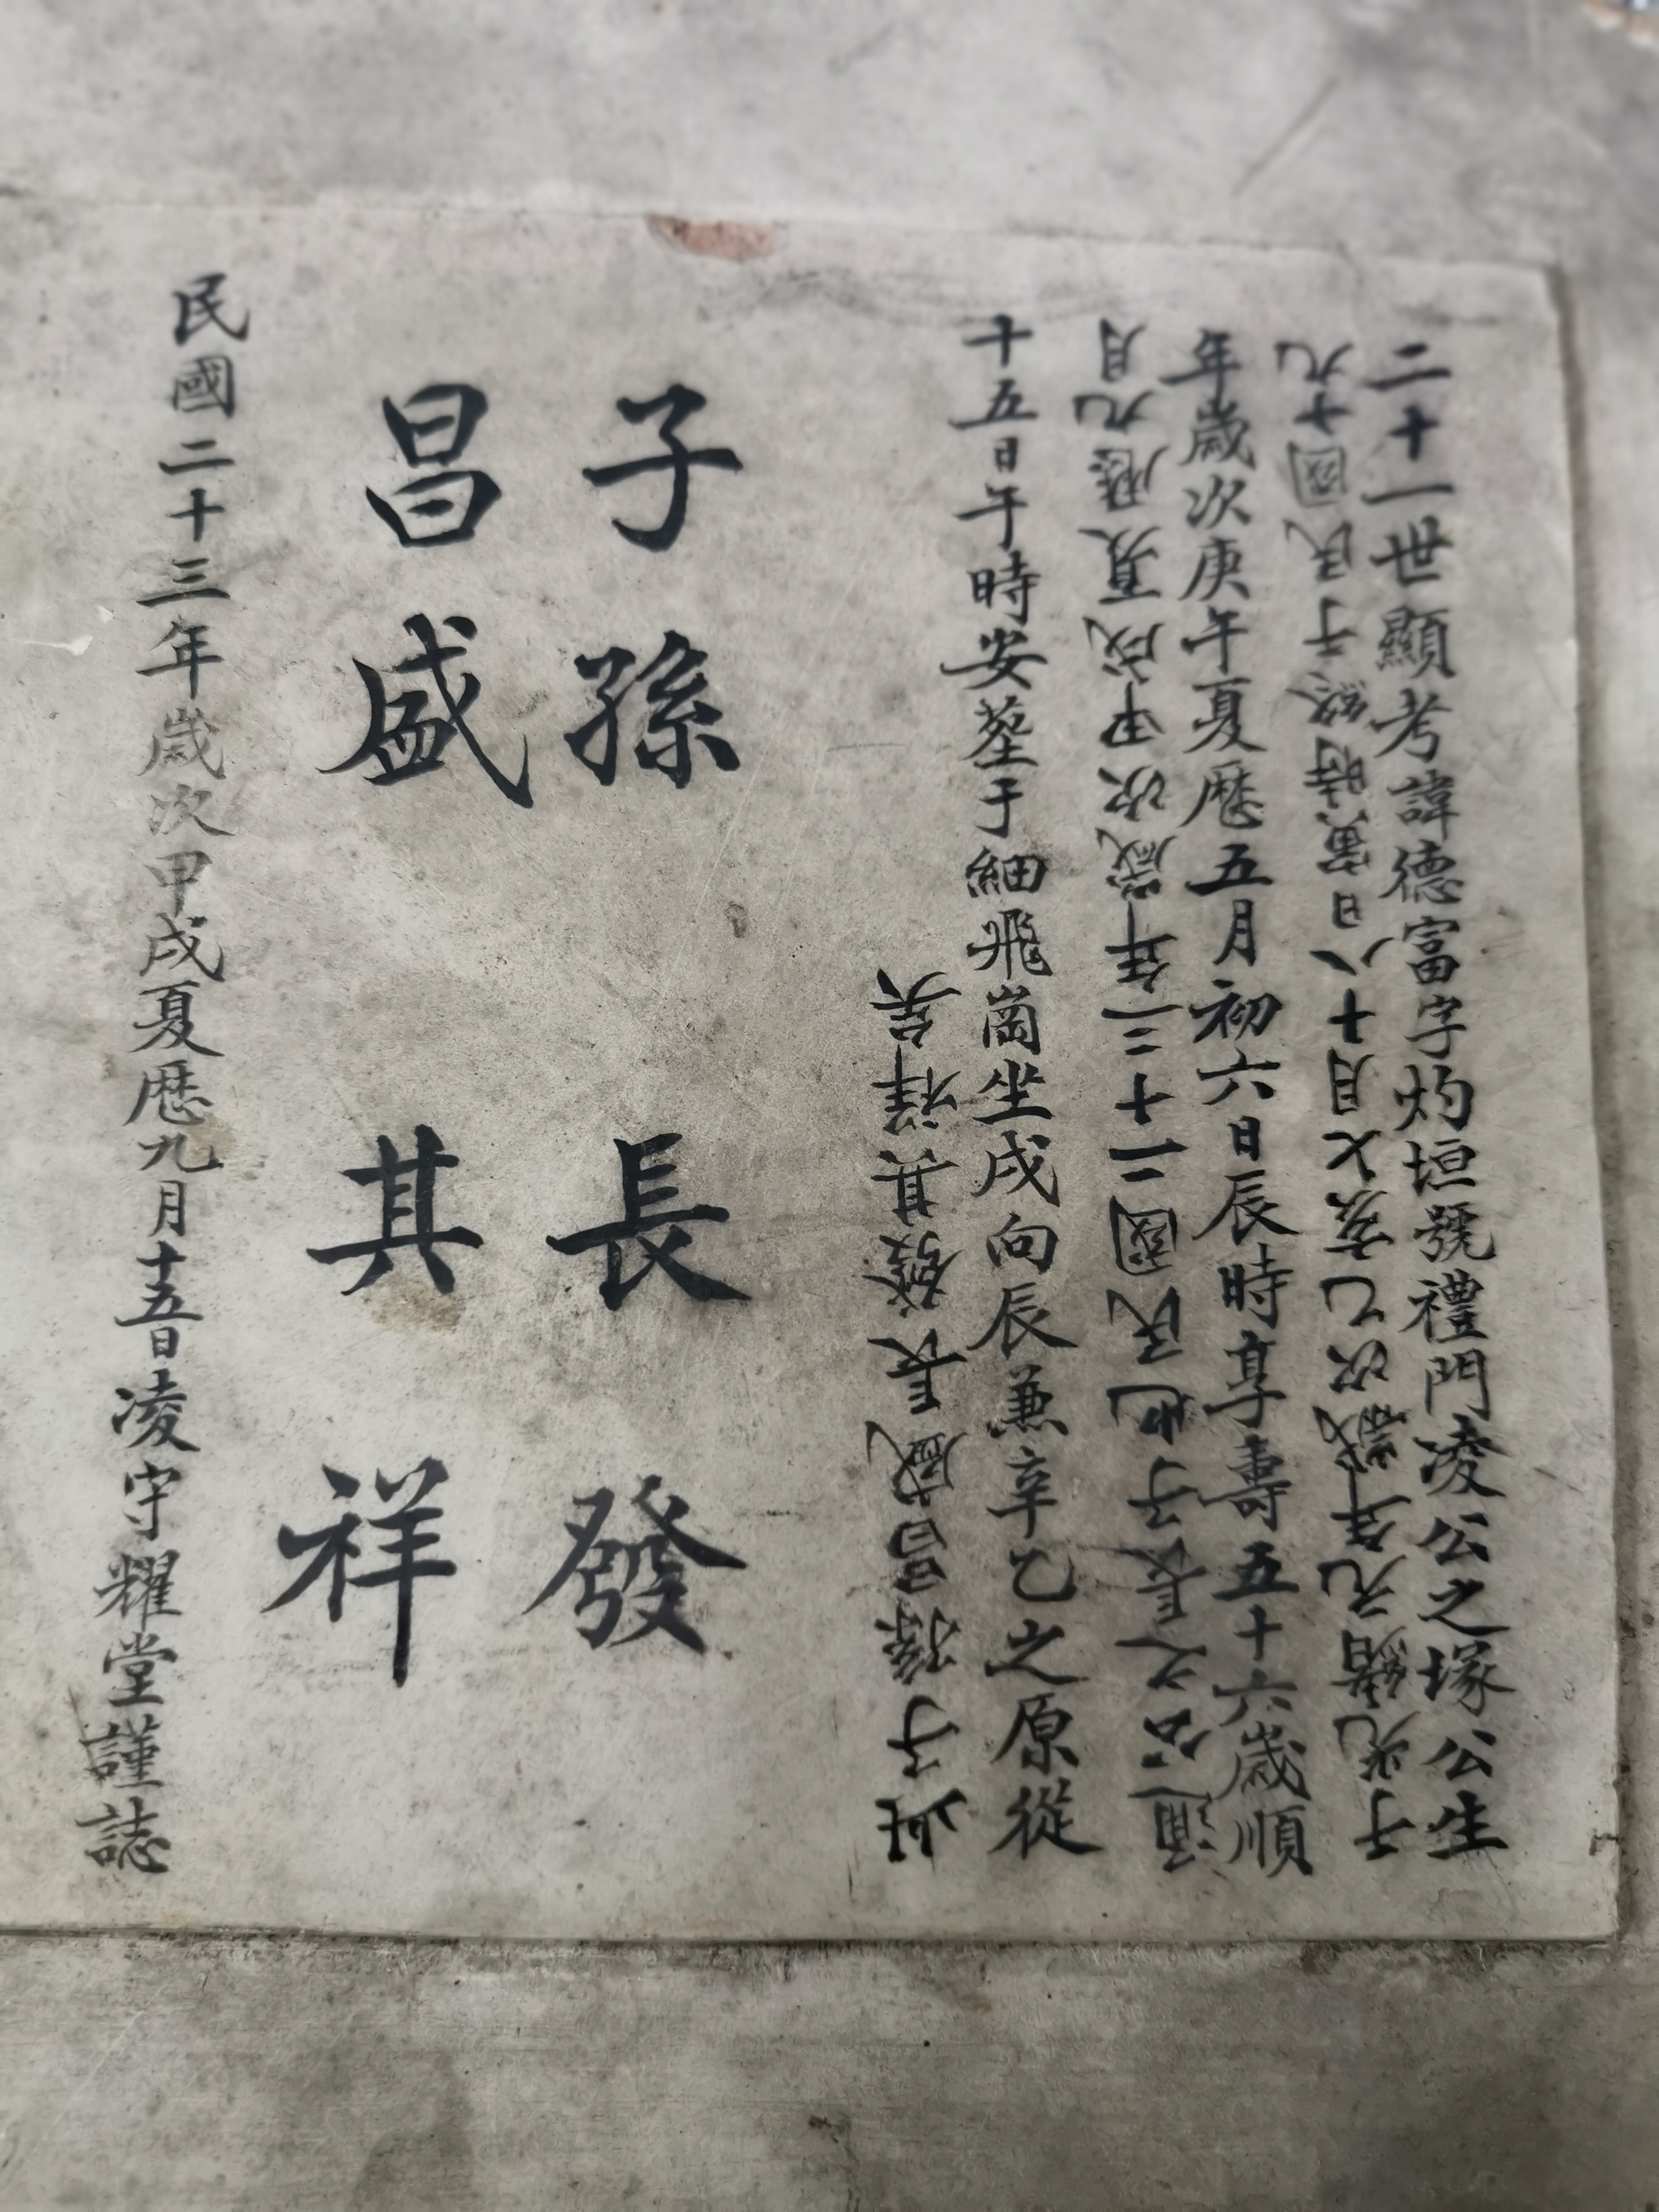 二十一世顯考諱德富字灼垣號禮門凌公之塚公生
于光緒元年歲次乙亥七月十八日寅時終于民國十九
年歲次庚午夏曆五月初六日辰時享壽五十六歲順
之長子也民國二十三年歲次甲戌夏曆九月
十五日午時安塟于細飛崗坐戌向辰兼辛乙之原從
此子孫昌盛長發其祥矣
子孫
昌盛
長發
其祥
民國二十三年歲次甲戌夏曆九月十五日凌守耀堂謹誌